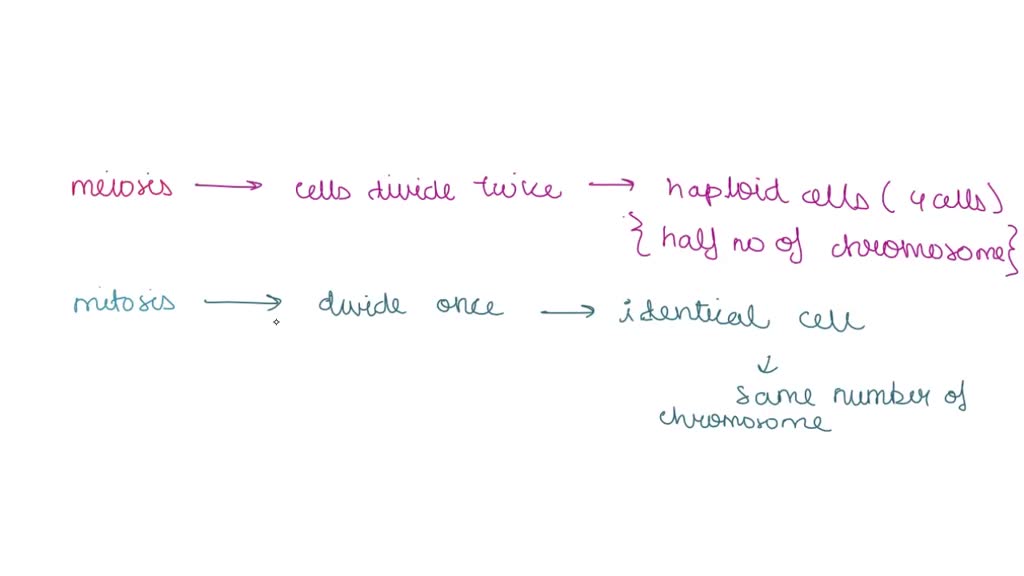 meiosis → cells divide twice → haploid cells (4 cells)
{half no of chromosome}
mitosis → divide once → identical cell
↓
same number of
chromosome